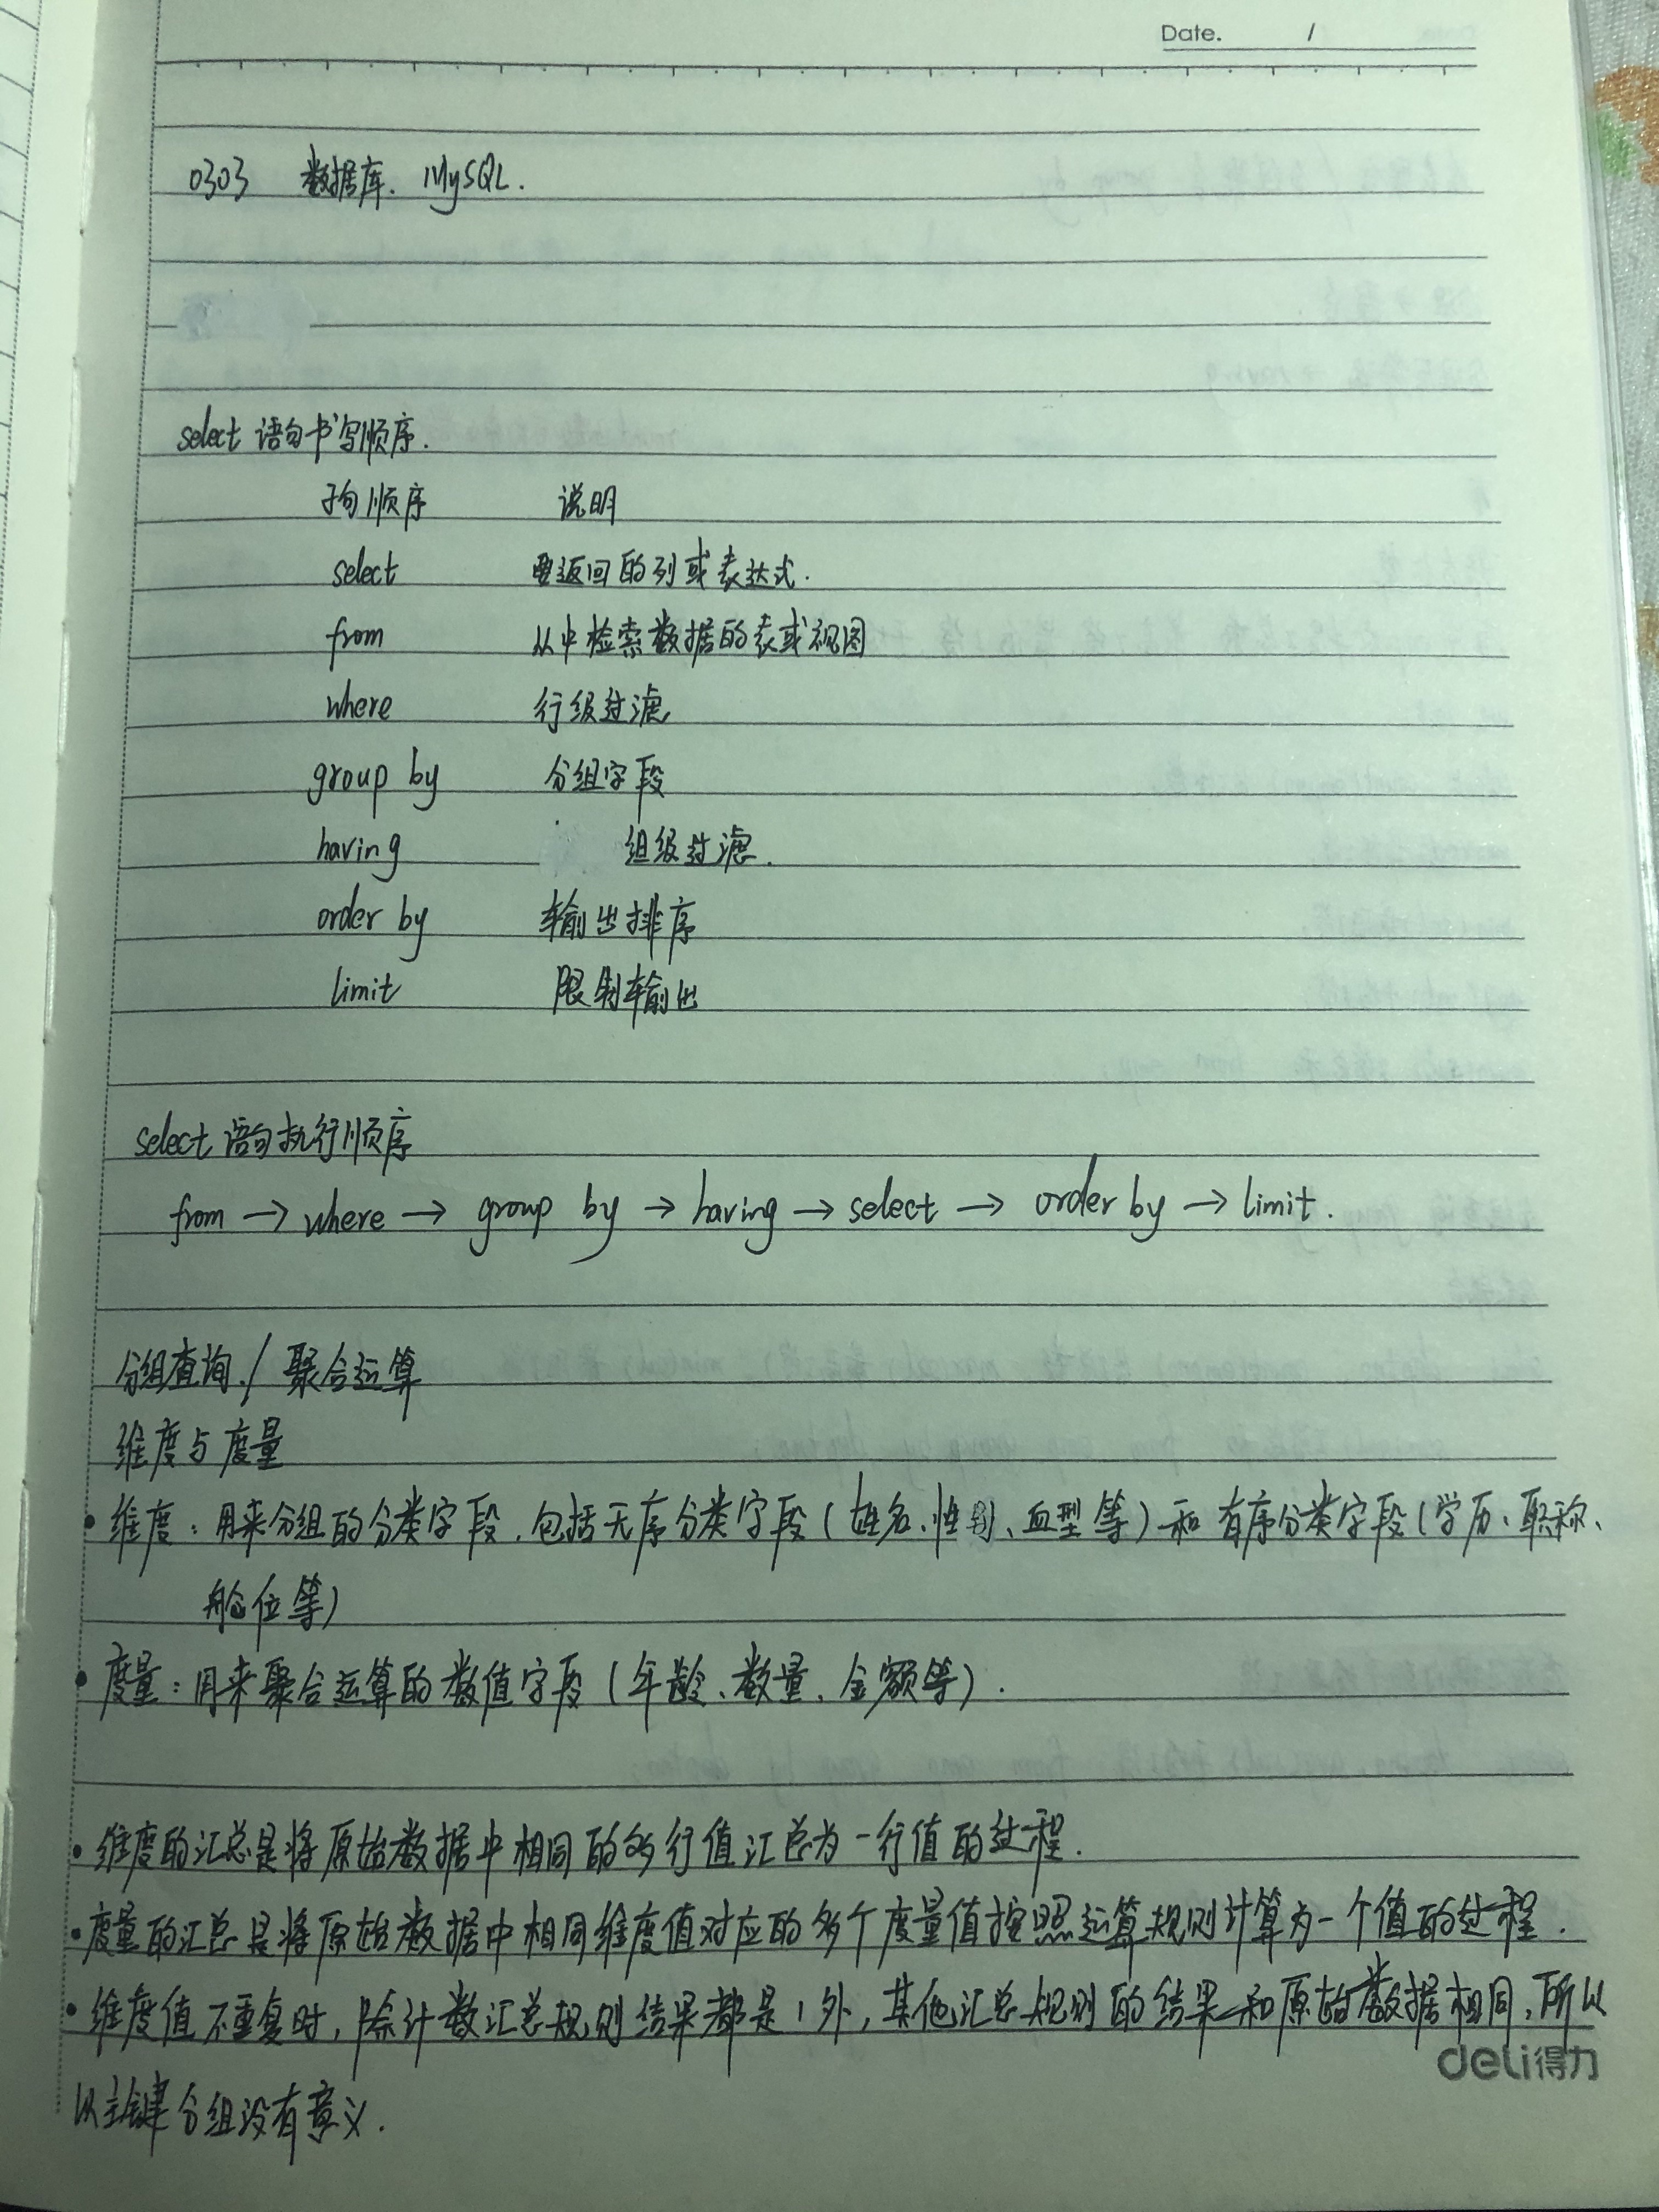 Date. /
0303 数据库. MySQL.
select 语句书写顺序.
子句顺序 说明
select 要返回的列或表达式.
from 从中检索数据的表或视图
where 行级过滤
group by 分组字段
having 组级过滤.
order by 输出排序
limit 限制输出
select 语句执行顺序
from → where → group by → having → select → order by → limit.
分组查询 / 聚合运算
维度与度量
• 维度：用来分组的分类字段, 包括无序分类字段(姓名、性别、血型等)和有序分类字段(学历、职称、
舱位等)
• 度量：用来聚合运算的数值字段(年龄、数量、金额等).
• 维度的汇总是将原始数据中相同的多行值汇总为一行值的过程.
• 度量的汇总是将原始数据中相同维度值对应的多个度量值按照运算规则计算为一个值的过程.
• 维度值不重复时, 除计数汇总规则结果都是1外, 其他汇总规则的结果和原始数据相同, 所以
以主键分组没有意义.
deli得力